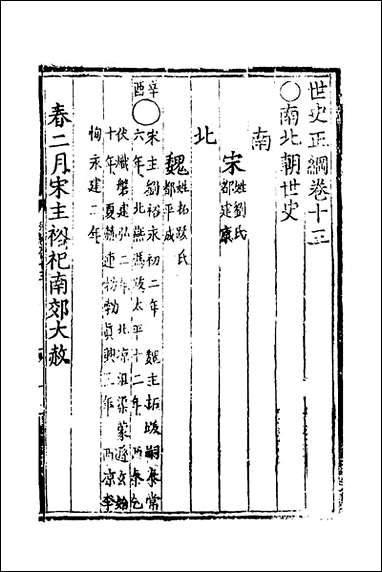 世史正綱卷十三
○南北朝世史
南
宋 姓劉氏
都建康
北
魏 姓拓跋氏
都平城
辛酉○
宋主劉裕永初二年 魏主拓跋嗣泰常
六年 北燕馮跋太平十二年 西秦乞
伏熾磐建弘二年 北凉沮渠蒙遜玄始
十年 夏赫連勃勃真興三年 西凉李
恂永建二年
春二月宋主裕祀南郊大赦